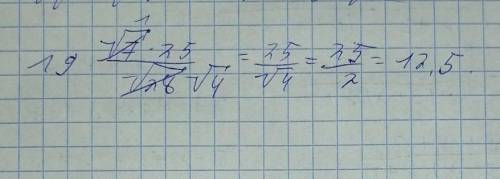 19 √7¹ · 25 / √28 √4 = 25/√4 = 25/2 = 12,5.